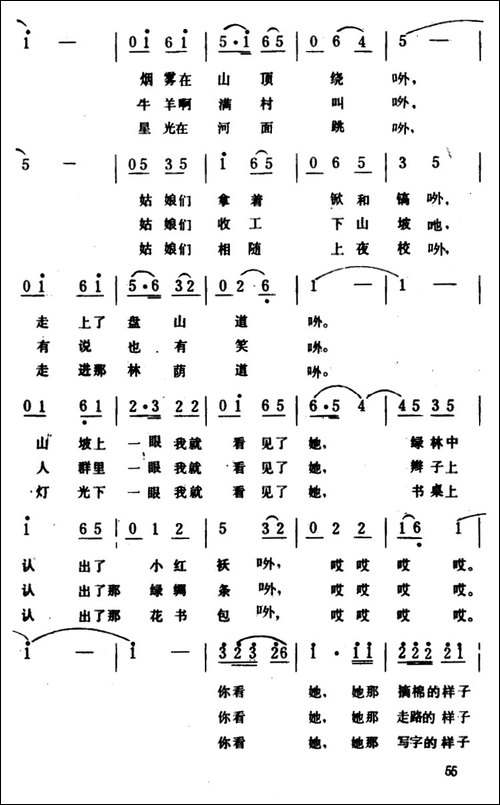 i — | 0 i 6 i | 5·i 6 5 | 0 6 4 | 5 —
烟雾在 山顶 绕 哟,
牛羊啊 满村 叫 哟,
星光在 河面 跳 哟,
5 — | 0 5 3 5 | i 6 5 | 0 6 5 | 3 5
姑娘们 拿着 锨和镐哟,
姑娘们 收工 下山坡吔,
姑娘们 相随 上夜校哟,
0 i 6 i | 5·6 3 2 | 0 2 6 | 1 — | 1 —
走上了 盘山 道 哟。
有说也有 笑 哟。
走进那林荫 道 哟。
0 1 6 1 | 2·3 2 2 | 0 i 6 5 | 6·5 4 | 4 5 3 5
山坡上 一眼我就 看见了 她, 绿林中
人群里 一眼我就 看见了 她, 辫子上
灯光下 一眼我就 看见了 她, 书桌上
i 6 5 | 0 1 2 | 5 3 2 | 0 2 2 | 1 6 | i —
认 出了 小红 袄 哟, 哎哎 哎 哎。
认 出了那 绿绸 条 哟, 哎哎 哎 哎。
认 出了那 花书 包 哟, 哎哎 哎 哎。
i — | i — | 3 2 3 2 6 | i · i i | 2 2 2 2 1
你看 她, 她那 摘棉的样子
你看 她, 她那 走路的样子
你看 她, 她那 写字的样子
55